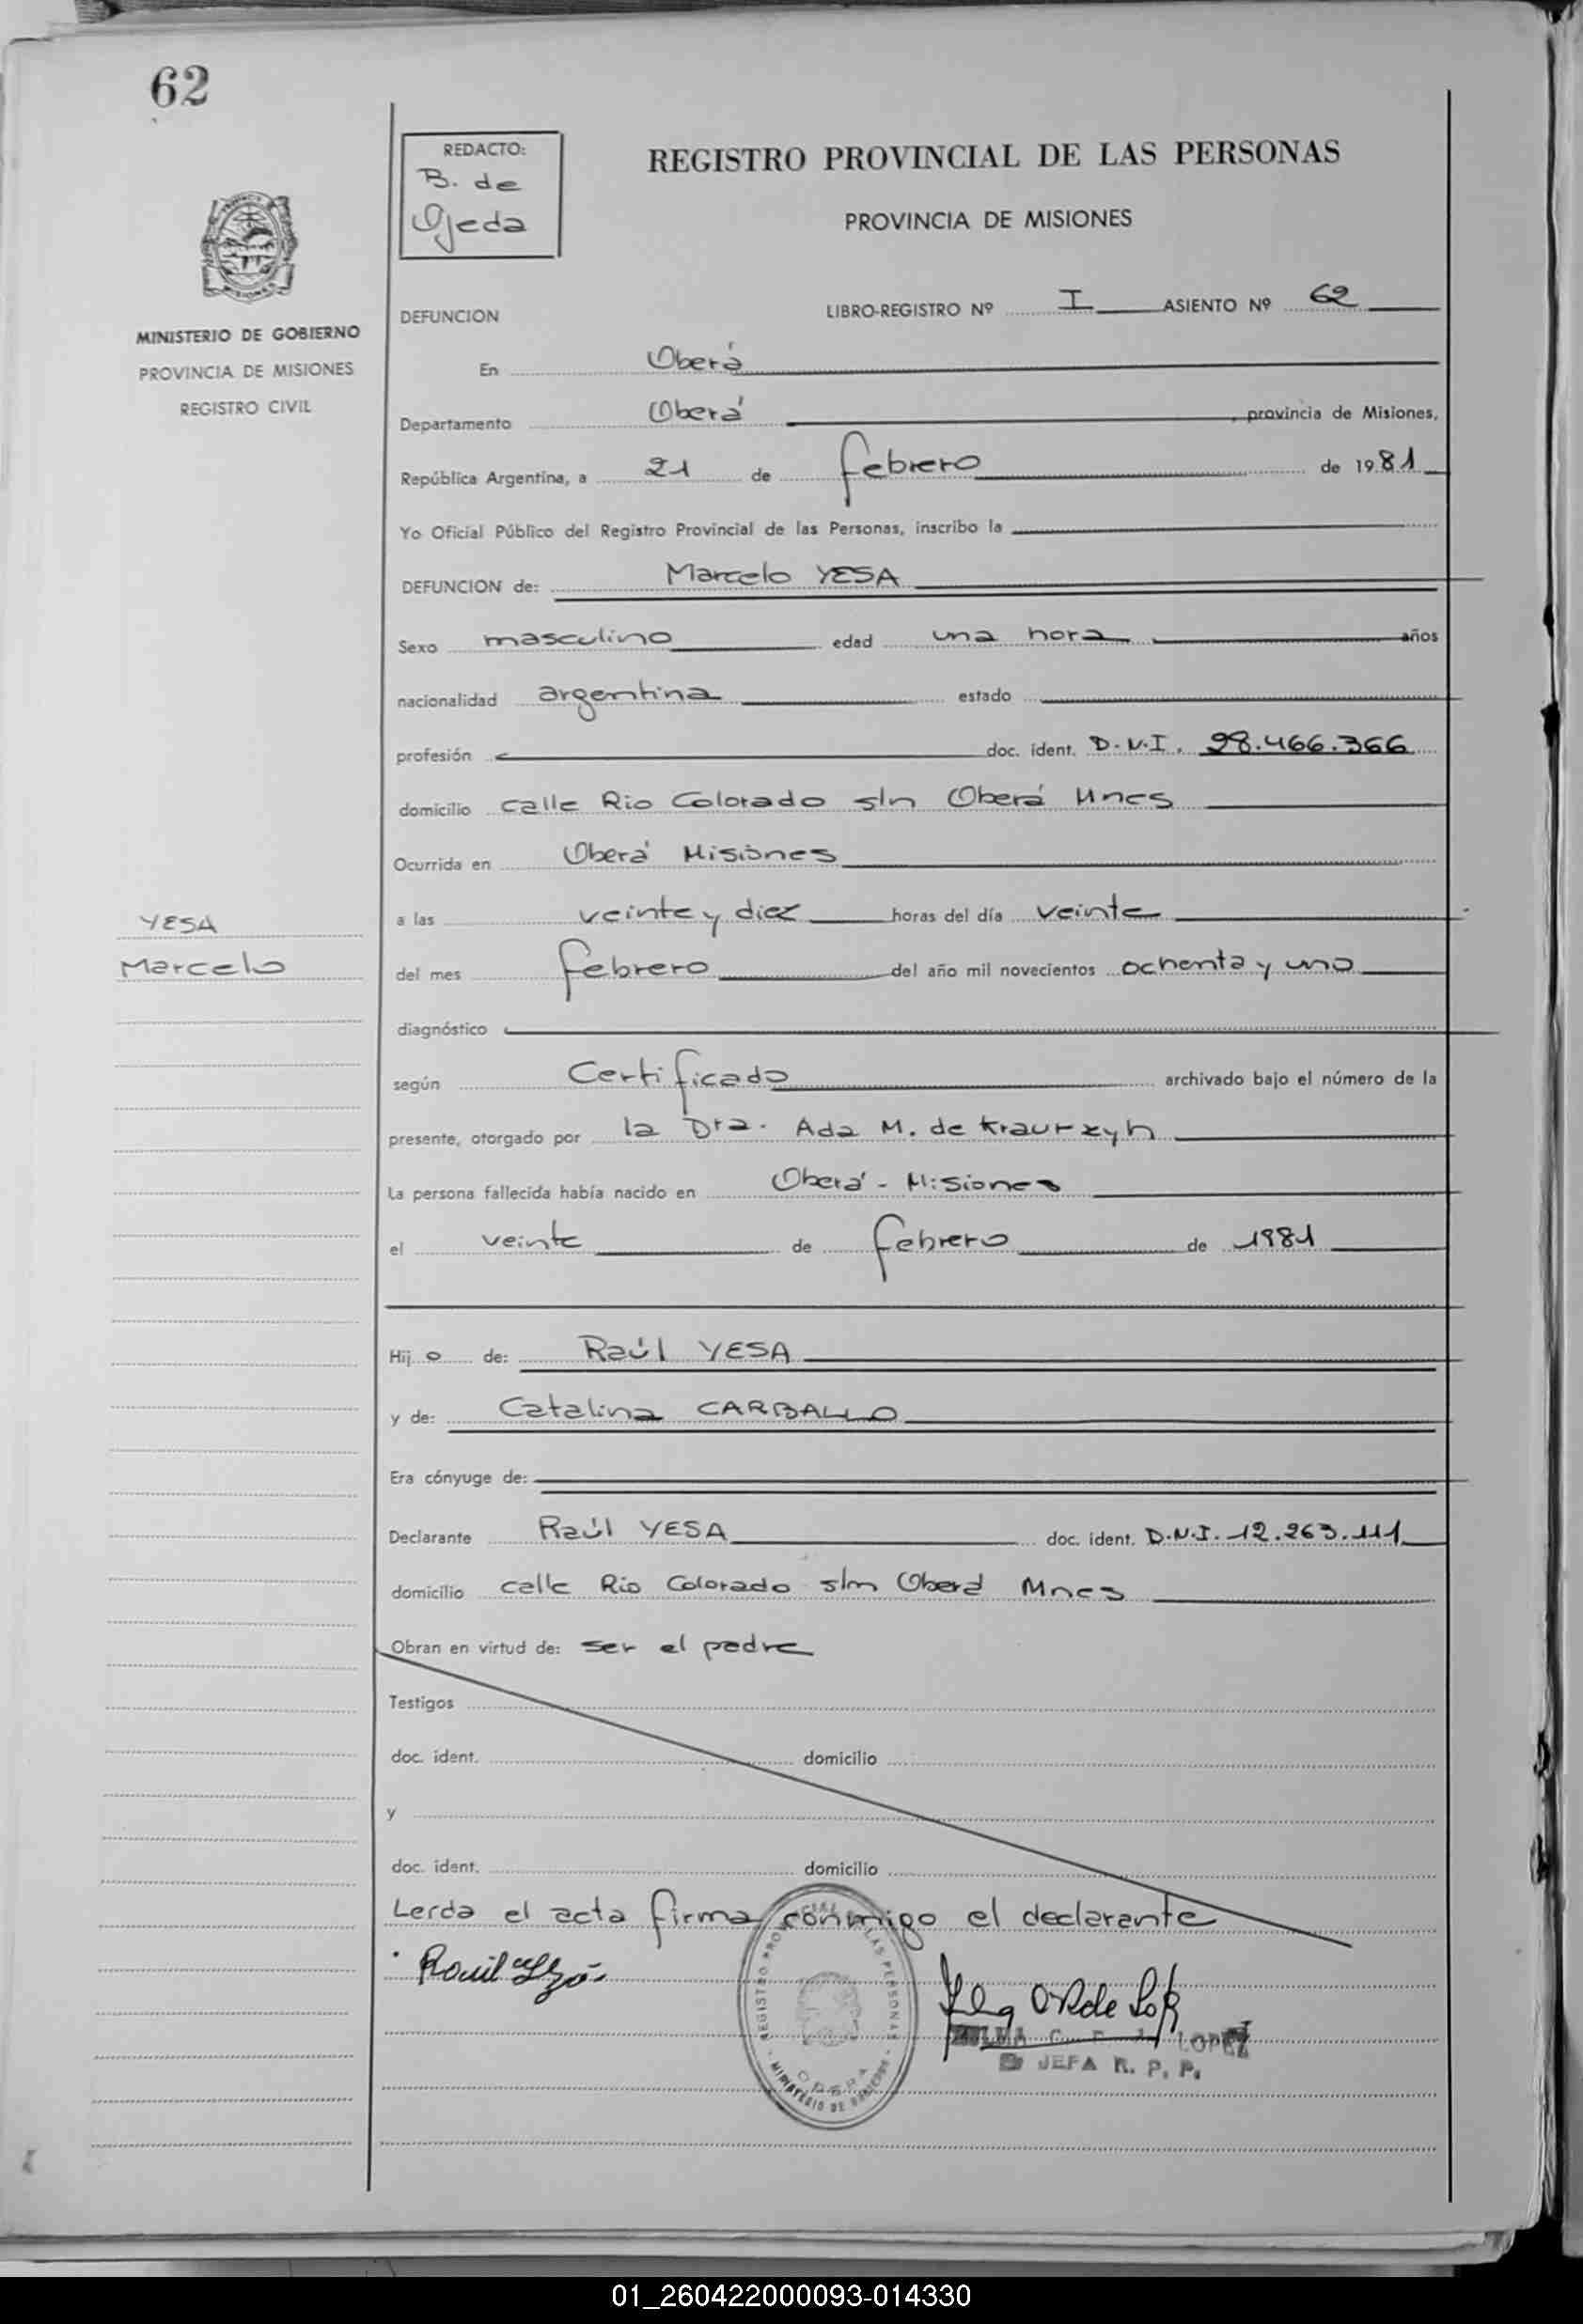 62
REDACTO:
B. de
Ojeda
REGISTRO PROVINCIAL DE LAS PERSONAS
PROVINCIA DE MISIONES
MINISTERIO DE GOBIERNO
PROVINCIA DE MISIONES
REGISTRO CIVIL
DEFUNCION
LIBRO-REGISTRO Nº I ASIENTO Nº 62
En Oberá
Departamento Oberá, provincia de Misiones,
República Argentina, a 21 de febrero de 1981
Yo Oficial Público del Registro Provincial de las Personas, inscribo la
DEFUNCION de: Marcelo YESA
Sexo masculino edad una hora años
nacionalidad argentina estado
profesión doc. ident. D.N.I. 28.466.366
domicilio calle Rio Colorado s/n Oberá Mnes
Ocurrida en Oberá Misiones
YESA
Marcelo
a las veinte y diez horas del día veinte
del mes febrero del año mil novecientos ochenta y uno
diagnóstico
según Certificado archivado bajo el número de la
presente, otorgado por la Dra. Ada M. de
La persona fallecida había nacido en Oberá - Misiones
el veinte de febrero de 1981
Hijo de: Raúl YESA
y de: Catalina CARBALLO
Era cónyuge de:
Declarante Raúl YESA doc. ident. D.N.I. 12.263.111
domicilio calle Rio Colorado s/n Oberá Mnes
Obran en virtud de: ser el padre
Testigos
doc. ident. domicilio
y
doc. ident. domicilio
Leida el acta firma conmigo el declarante
Raúl
REGISTRO PROVINCIAL LAS PERSONAS
OBERA
MINISTERIO DE GOBIERNO
LOPEZ
JEFA R. P. P.
01_260422000093-014330